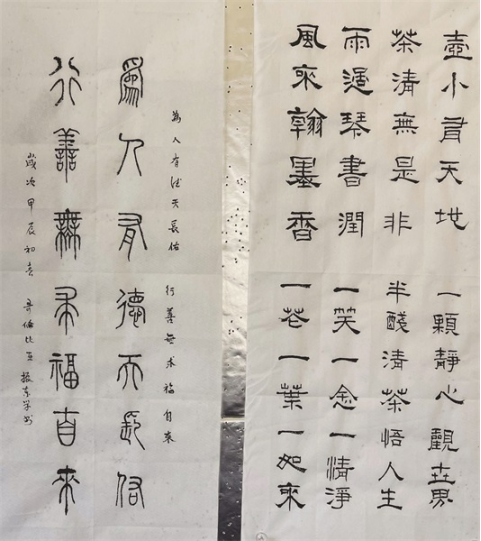 壺小有天地
茶清無是非
雨過琴書潤
風來翰墨香
一顆靜心觀世界
半醆清茶悟人生
一笑一念一清淨
一花一葉一如來
為人有德天長佑 行善無求福自來
為人有德天長佑
行善無求福自來
歲次甲辰初春 哥倫比亞 振東學書